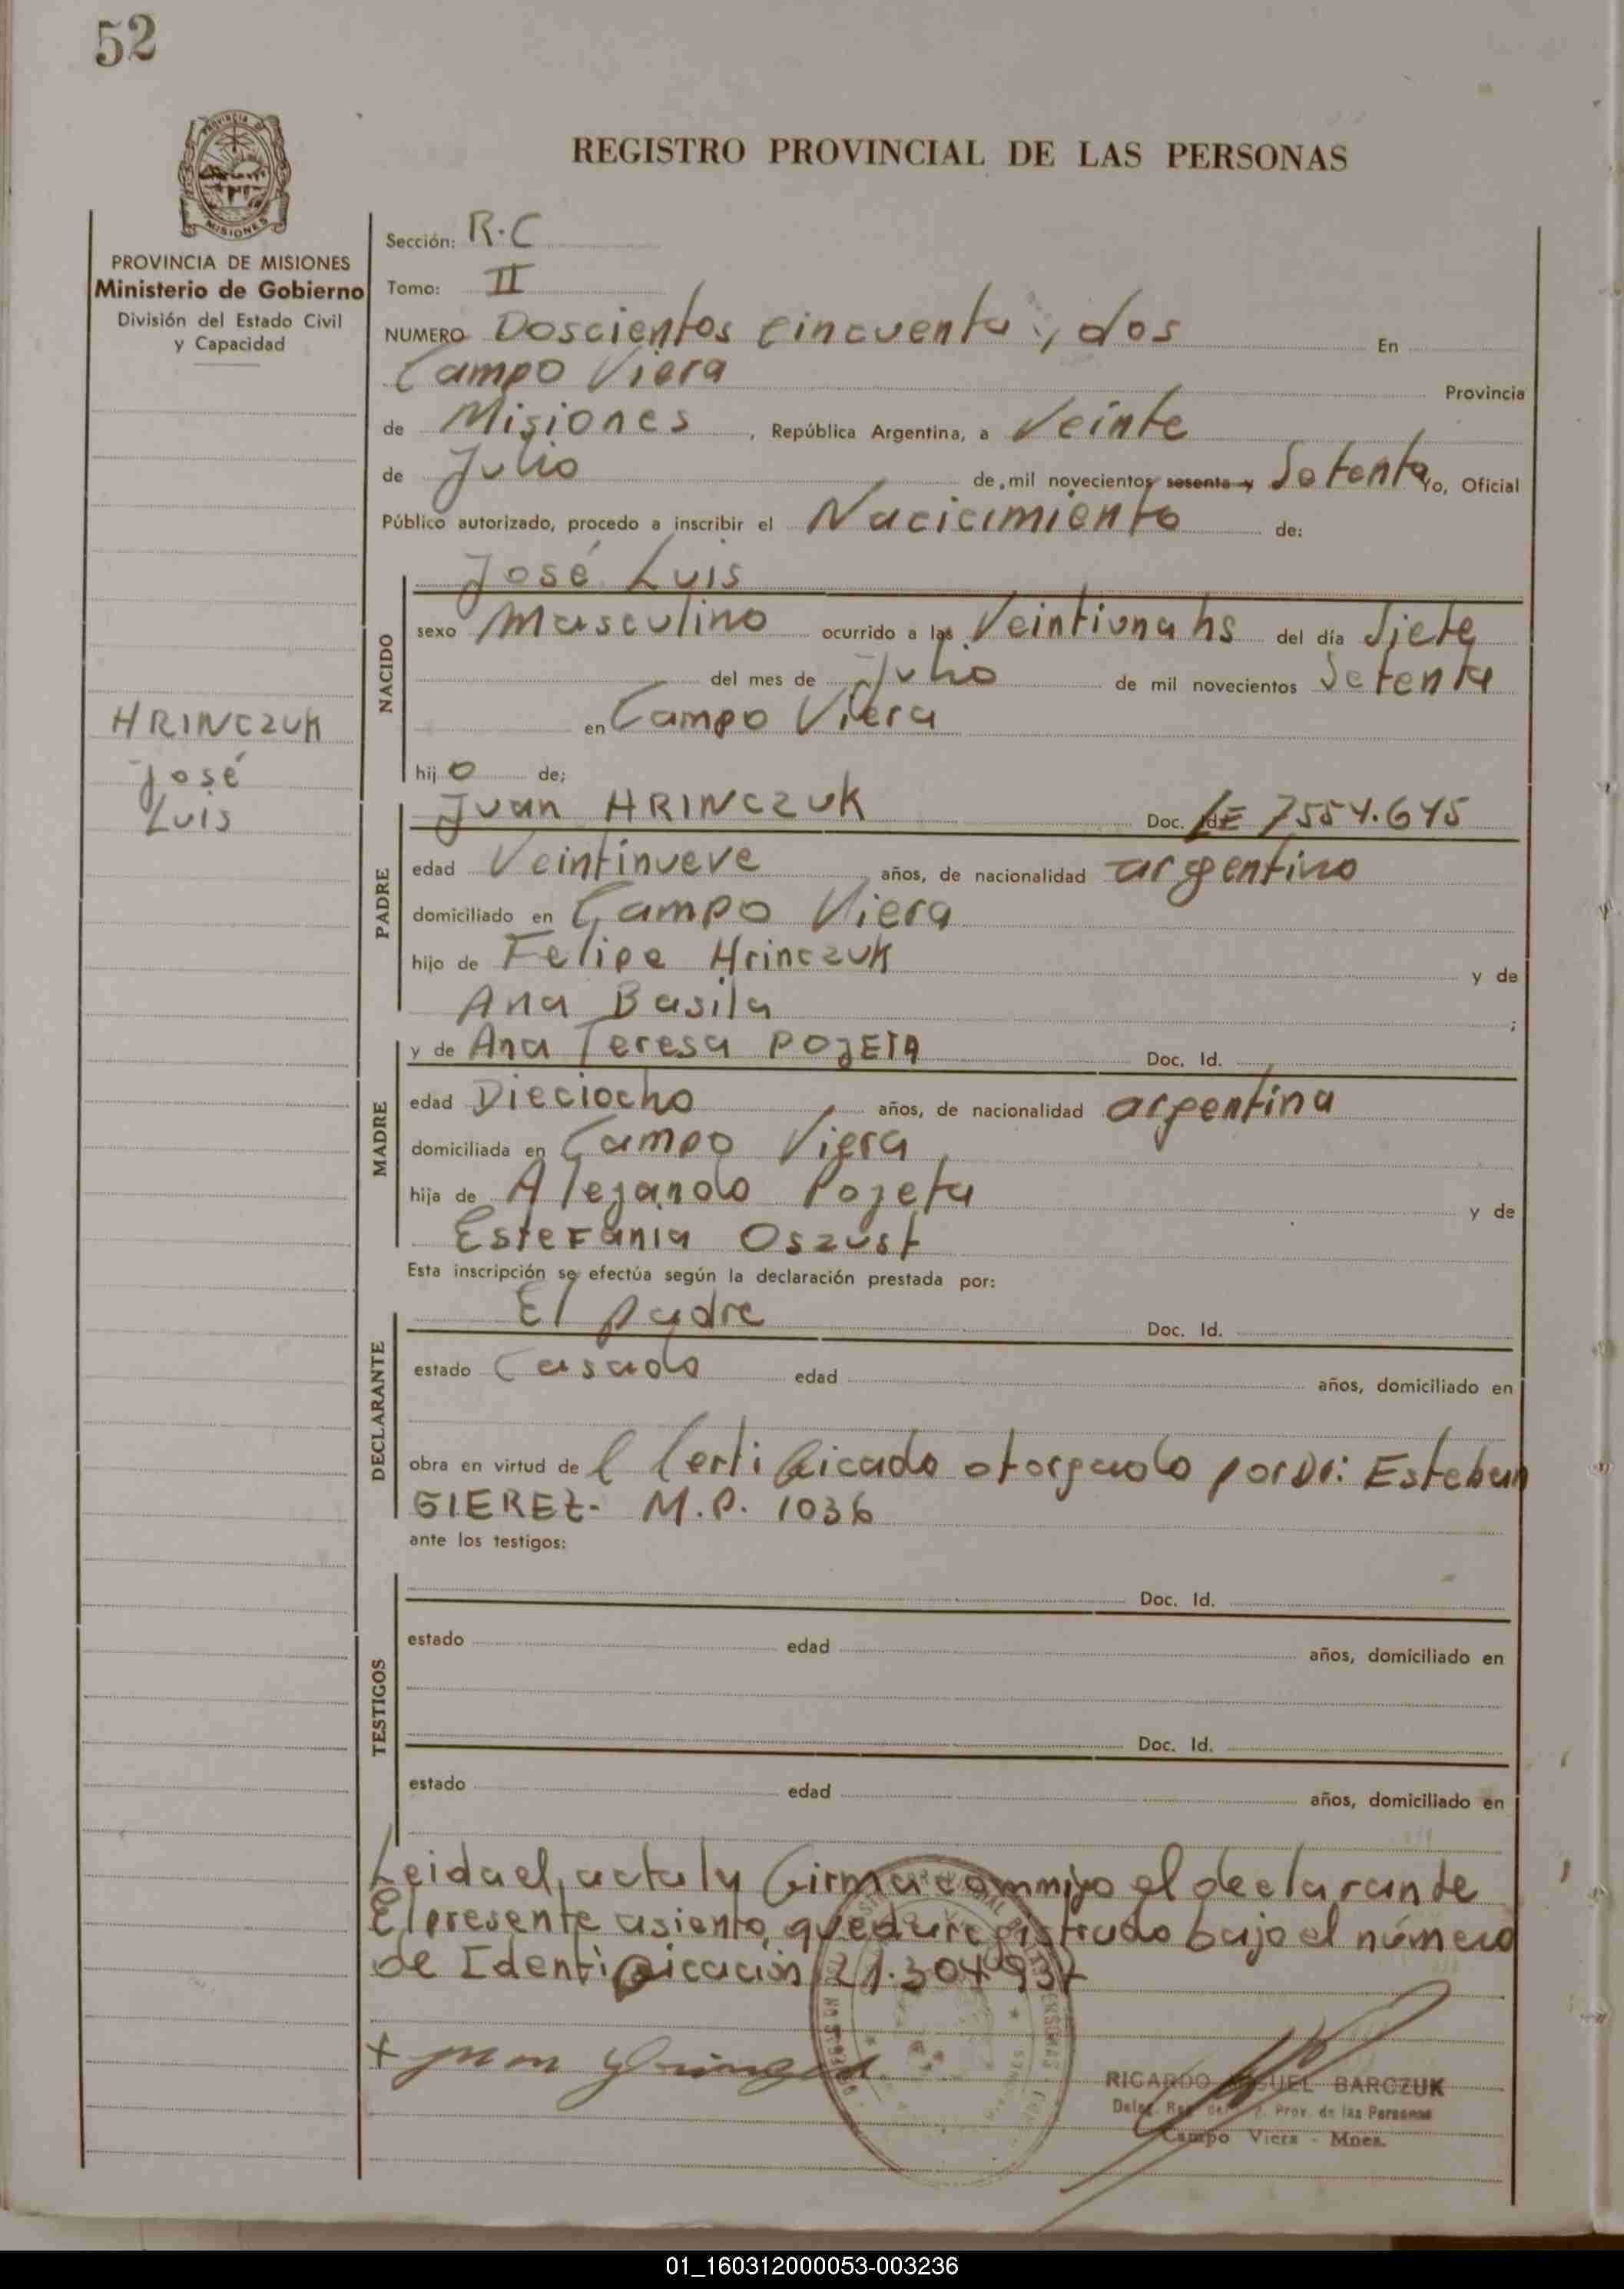 52
REGISTRO PROVINCIAL DE LAS PERSONAS
MISIONES
PROVINCIA DE MISIONES
Ministerio de Gobierno
División del Estado Civil
y Capacidad
HRINCZUK
José
Luis
Sección: R.C
Tomo: II
NUMERO Doscientos cincuenta y dos En
Campo Viera Provincia
de Misiones, República Argentina, a Veinte
de Julio de mil novecientos sesenta y Setenta Yo, Oficial
Público autorizado, procedo a inscribir el Nacicimiento de:
NACIDO
José Luis
sexo Masculino ocurrido a las Veintiuna hs del día Siete
del mes de Julio de mil novecientos Setenta
en Campo Viera
hijo de;
PADRE
Juan HRINCZUK Doc. Id. LE 7554.645
edad Veintinueve años, de nacionalidad argentino
domiciliado en Campo Viera
hijo de Felipe Hrinczuk y de
Ana Basila ;
MADRE
y de Ana Teresa POJETA Doc. Id.
edad Dieciocho años, de nacionalidad argentina
domiciliada en Campo Viera
hija de Alejando Pojeta y de
Estefania Oszust
Esta inscripción se efectúa según la declaración prestada por:
DECLARANTE
El padre Doc. Id.
estado Casado edad años, domiciliado en
obra en virtud del Certificado otorgado por Dr: Esteban
GIEREZ- M.P. 1036
ante los testigos:
TESTIGOS
Doc. Id.
estado edad años, domiciliado en
Doc. Id.
estado edad años, domiciliado en
Leida el acta ly firma conmigo el declarante
El presente asiento, queda registrado bajo el número
de Identificación 21.304.937
+ Juan
RICARDO MIGUEL BARCZUK
Prov. de las Personas
Campo Viera - Mnes.
01_160312000053-003236